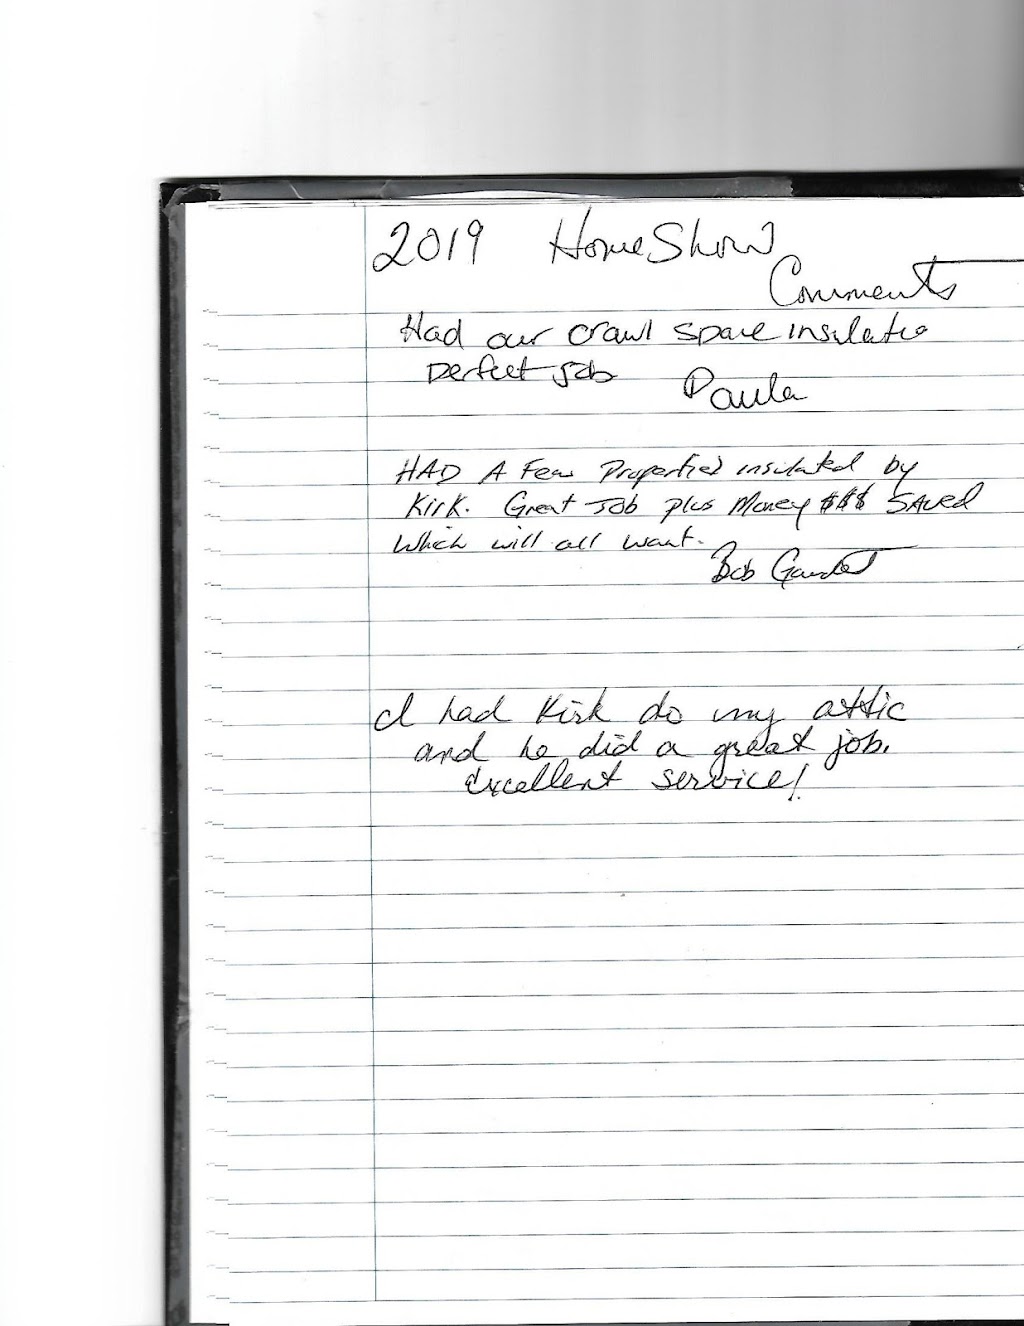 2019 Home Show
Comments
Had our crawl space insulatio
perfect job
Paula
HAD A Few Properties insulated by
Kirk. Great Job plus Money $$$ SAved
Which will all want.
Bob
I had Kirk do my attic
and he did a great job.
Excellent service!